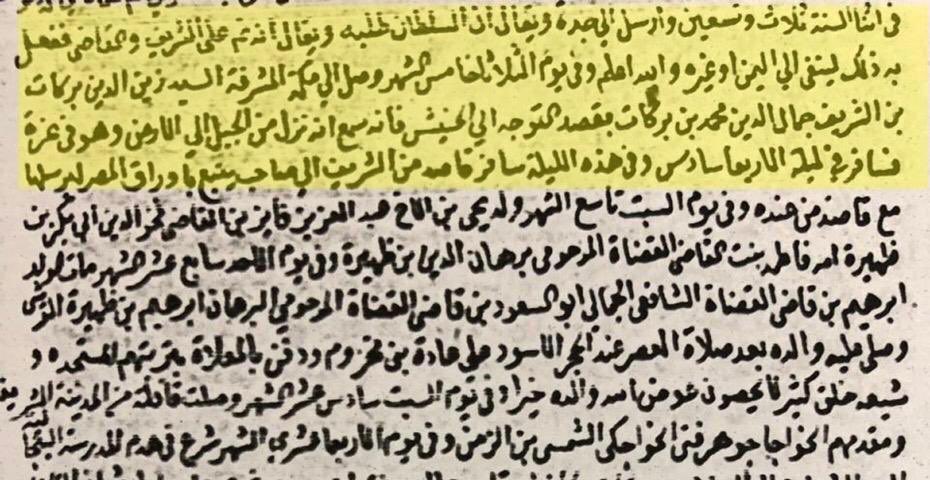 في اثنا السنة ثلاث وتسعين وارسل الي جدة ويقال ان السلطان طلبه ويقال انه تم على الشريف والقاضي ففعل
به ذلك لينفى الي اليمن او غيره والله اعلم وفي يوم الثلاثا خامس الشهر وصل الي مكة المشرفة السيد زين الدين بركات
بن الشريف جمال الدين محمد بن بركات بقصد التوجه الي فانه سمع انه نزل من الجبل الي الارض وهو في عزة
فسافر في ليلة الاربعا سادس وفي هذه الليلة سافر قاصد من الشريف الي صاحب ينبع باوراق المصر ليرسلها
مع قاصد من عنده وفي يوم السبت تاسع الشهر ولد يحيى بن الاخ عبد العزيز فايز بن القاضي فخر الدين ابي بكر بن
ظهيرة امه فاطمه بنت قاضي القضاة المرحومي برهان الدين بن ظهيرة وفي يوم الاحد سابع عشر الشهر مات الولد
ابرهيم بن قاضي القضاة الشافعي الجمالي ابو السعود بن قاضي القضاة المرحومي البرهان ابرهيم بن ظهيرة القرشي
وصلى عليه والده بعد صلاة العصر عند الحجر الاسود على عادة بني مخزوم ودفن بالمعلاة بتربتهم المستجده و
شيعه خلق كثير لا يحصون عوض الله والده خيرا وفي يوم السبت سادس عشر الشهر وصلت قافلة من المدينة الشريفة
ومقدمهم الخواجا جوهر فتى الخواجكي الشمسي بن الزمن وفي يوم الاربعا عشري الشهر شرع في هدم المدرسة